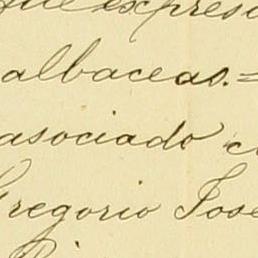 que expresi
albaceas.=
asociado c
Gregorio Jose